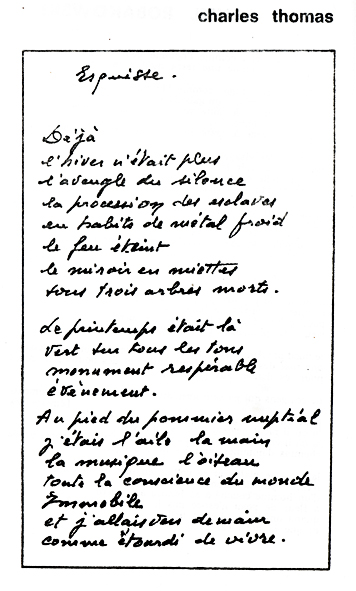 charles thomas
Esquisse.
Déjà
l'hiver n'était plus
l'aveugle du silence
la procession des esclaves
en habits de métal froid
le feu éteint
le miroir en miettes
sous trois arbres morts.
Le printemps était là
vert sur tous les tons
monument respirable
évènement.
Au pied du pommier nuptial
j'étais l'aile la main
la musique l'oiseau
toute la conscience du monde
Immobile
et j'allais vers demain
comme étourdi de vivre.